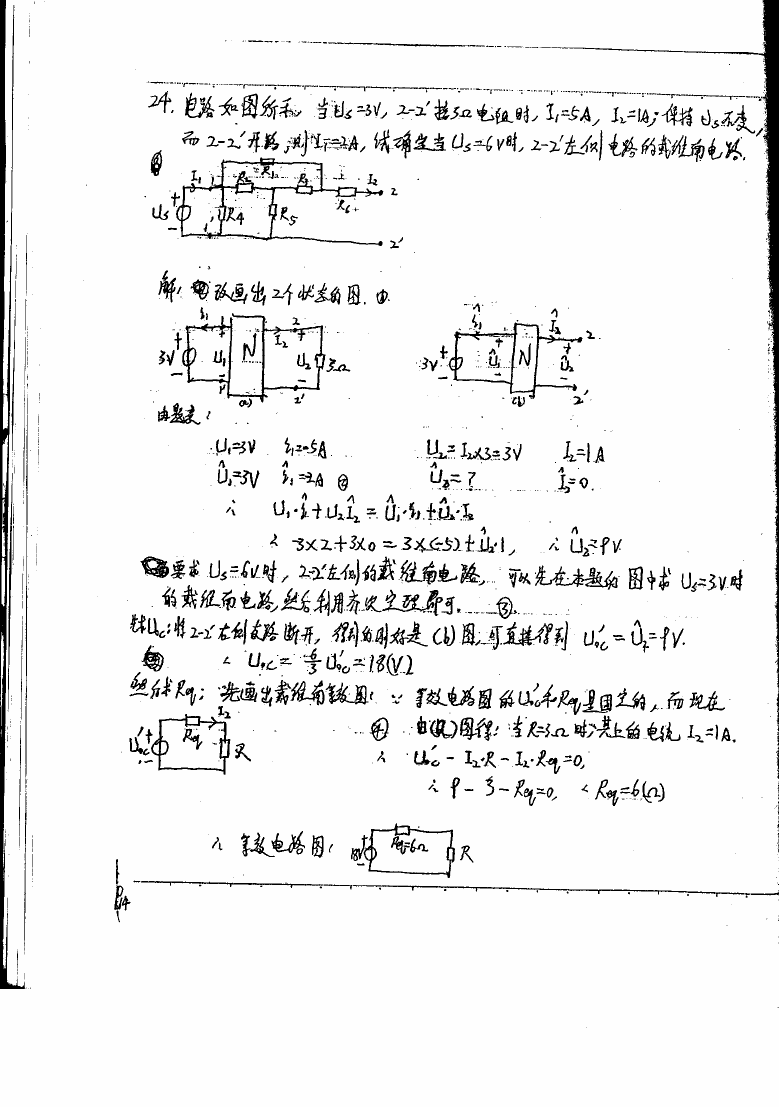 24. 电路如图所示, 当Us=3V, 2-2'接3Ω电阻时, I₁=5A, I₂=1A; 保持Us不变,
而2-2'开路, 则I₁=2A, 试确定当Us=6V时, 2-2'左侧电路的戴维南电路.
I₁ R₂ R₁ R₃ I₂ 2
Us R₄ R₅ R₆
1' 2'
解: 改画出2个状态的图.
3V U₁ N I₂ U₂ 3Ω 2 2' (a)
3V Û₁ N Î₂ Û₂ 2 2' (b)
由题意:
U₁=3V i₁=-5A U₂=I₂×3=3V I₂=1A
Û₁=3V î₁=-2A ② Û₂=? Î₂=0.
∴ U₁·î₁+U₂Î₂ = Û₁·i₁+Û₂·I₂
∴ -3×2+3×0=3×(-5)+Û₂·1, ∴ Û₂=9V
要求Us=6V时, 2-2'左侧的戴维南电路, 可以先在本题的图中求Us=3V时
的戴维南电路, 然后利用齐次定理即可. ③.
求Uoc: 将2-2'右侧支路断开, 得到的刚好是(b)图, 可直接得到 U'oc=Û₂=9V.
∴ Uoc=6/3 U'oc=18(V)
然后求Req: 先画出戴维南等效图: ∵ 等效电路图的U'oc和Req是固定的, 而现在
U'oc Req I₂ R ④ 由(a)图得: 当R=3Ω时, 其上的电流I₂=1A.
∴ U'oc-I₂·R-I₂·Req=0,
∴ 9-3-Req=0, ∴ Req=6(Ω)
∴ 等效电路图: 18V Req=6Ω R